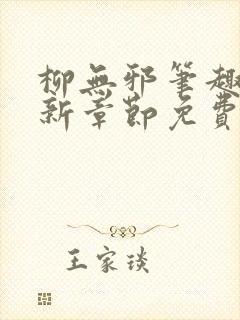 柳無邪筆趣
新章節免費
王家琰